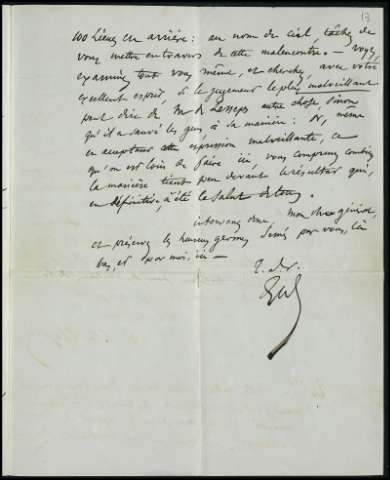 13
100 lieues en arrière : au nom du ciel, tâchez de
vous mettre en travers de cette malencontre. — Voyez,
examinez tout vous même, et cherchez, avec votre
excellent esprit, si le jugement le plus malveillant
peut dire de Mr de Lesseps autre chose, sinon
qu'il a sauvé les gens à sa manière : Or, même
en acceptant cette expression malveillante, ce
qu'on est loin de faire ici, vous comprenez combien
la manière tient peu devant le résultat qui,
en définitive, a été le salut de tous.
intervenez donc, mon cher général,
et préservez les heureux germes semés par vous, là
bas, et par moi, ici —
T. à v.